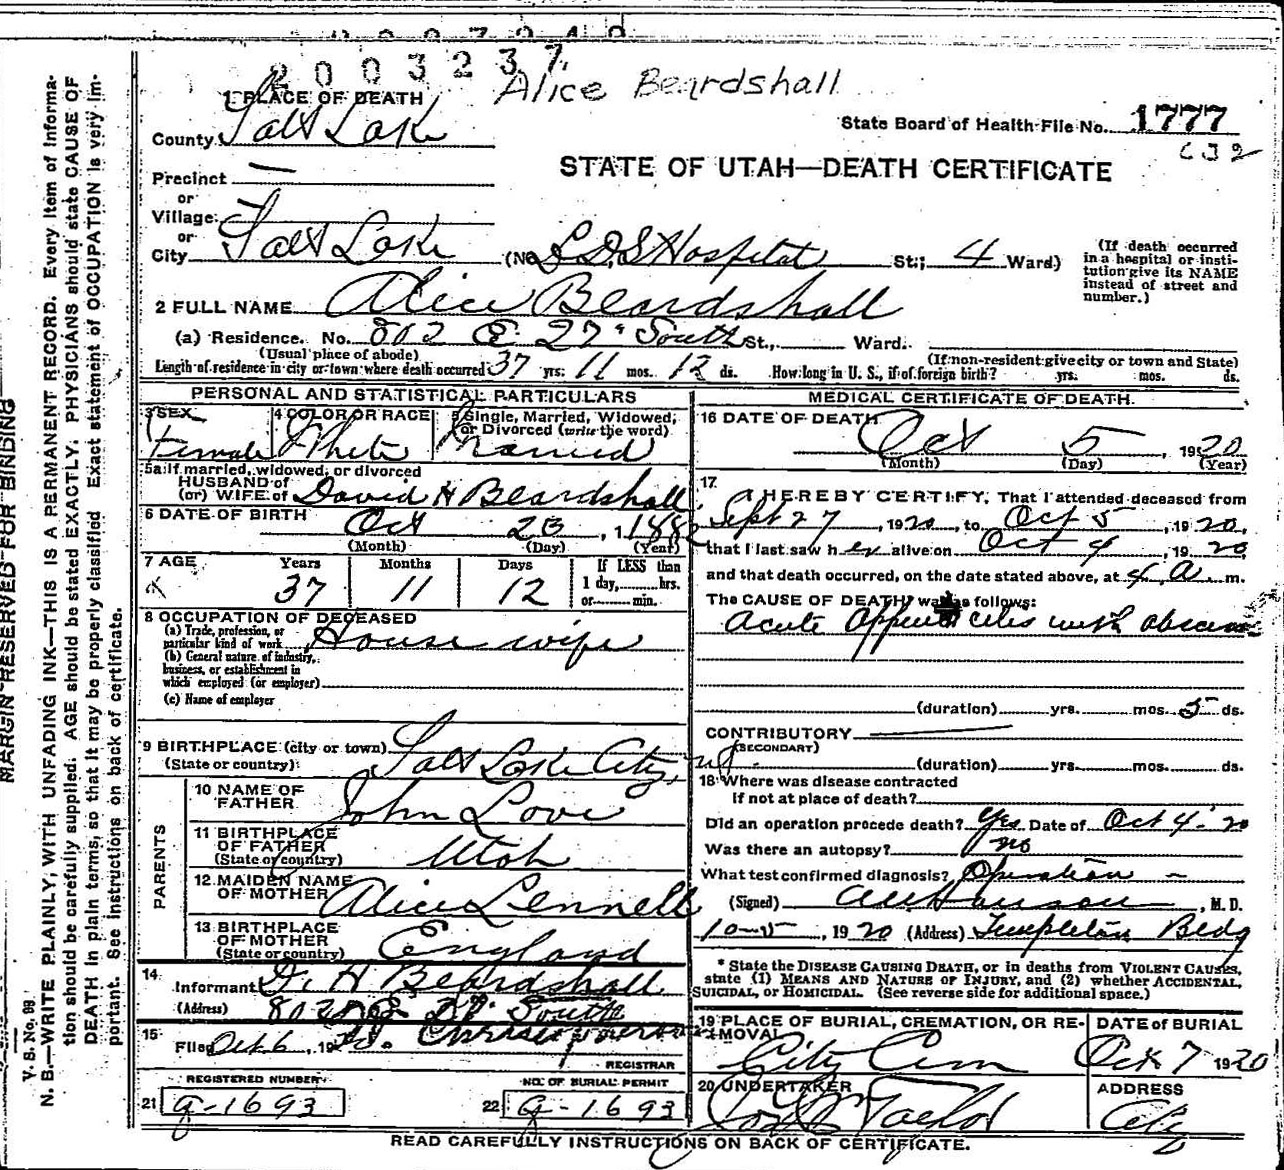 2003237
Alice Beardshall
1 PLACE OF DEATH
County Salt Lake
State Board of Health File No. 1777
C32
STATE OF UTAH—DEATH CERTIFICATE
Precinct —
or
Village
or
City Salt Lake (No. L.D.S Hospital St.; 4 Ward)
(If death occurred in a hospital or institution give its NAME instead of street and number.)
2 FULL NAME Alice Beardshall
(a) Residence. No. 802 E 27" South St., Ward.
(Usual place of abode) (If non-resident give city or town and State)
Length of residence in city or town where death occurred 37 yrs. 11 mos. 12 ds. How long in U. S., if of foreign birth? yrs. mos. ds.
PERSONAL AND STATISTICAL PARTICULARS
3 SEX Female
4 COLOR OR RACE White
5 Single, Married, Widowed, or Divorced (write the word) Married
5a If married, widowed, or divorced
HUSBAND of
(or) WIFE of David H Beardshall
6 DATE OF BIRTH Oct 23, 1882
(Month) (Day) (Year)
7 AGE Years 37 Months 11 Days 12
If LESS than 1 day, hrs. or min.
8 OCCUPATION OF DECEASED
(a) Trade, profession, or particular kind of work House wife
(b) General nature of industry, business, or establishment in which employed (or employer)
(c) Name of employer
9 BIRTHPLACE (city or town) Salt Lake City,
(State or country)
PARENTS
10 NAME OF FATHER John Love
11 BIRTHPLACE OF FATHER (State or country) Utah
12 MAIDEN NAME OF MOTHER Alice Lennell
13 BIRTHPLACE OF MOTHER (State or country) England
14 Informant D. H Beardshall
(Address) 802 E 27 South
15 Filed Oct 6, 1920.
REGISTRAR
REGISTERED NUMBER
21 G-1693
NO. OF BURIAL PERMIT
22 G-1693
MEDICAL CERTIFICATE OF DEATH.
16 DATE OF DEATH Oct 5, 1920
(Month) (Day) (Year)
17 I HEREBY CERTIFY, That I attended deceased from
Sept 27, 1920, to Oct 5, 1920,
that I last saw her alive on Oct 4, 1920
and that death occurred, on the date stated above, at 4 A m.
The CAUSE OF DEATH* was as follows:
Acute Appendicitis with abscess
(duration) yrs. mos. 5 ds.
CONTRIBUTORY —
(SECONDARY)
(duration) yrs. mos. ds.
18 Where was disease contracted
If not at place of death?
Did an operation precede death? Yes Date of Oct 4-20
Was there an autopsy? no
What test confirmed diagnosis? Operation —
(Signed) M. D.
10-5, 1920 (Address) Templeton Bldg
* State the DISEASE CAUSING DEATH, or in deaths from VIOLENT CAUSES, state (1) MEANS AND NATURE OF INJURY, and (2) whether ACCIDENTAL, SUICIDAL, or HOMICIDAL. (See reverse side for additional space.)
19 PLACE OF BURIAL, CREMATION, OR REMOVAL City Cem
DATE of BURIAL Oct 7 1920
20 UNDERTAKER Taylor
ADDRESS City
READ CAREFULLY INSTRUCTIONS ON BACK OF CERTIFICATE.
MARGIN RESERVED FOR BINDING
V. S. No. 99
N. B.—WRITE PLAINLY, WITH UNFADING INK—THIS IS A PERMANENT RECORD. Every item of information should be carefully supplied. AGE should be stated EXACTLY. PHYSICIANS should state CAUSE OF DEATH in plain terms, so that it may be properly classified. Exact statement of OCCUPATION is very important. See instructions on back of certificate.